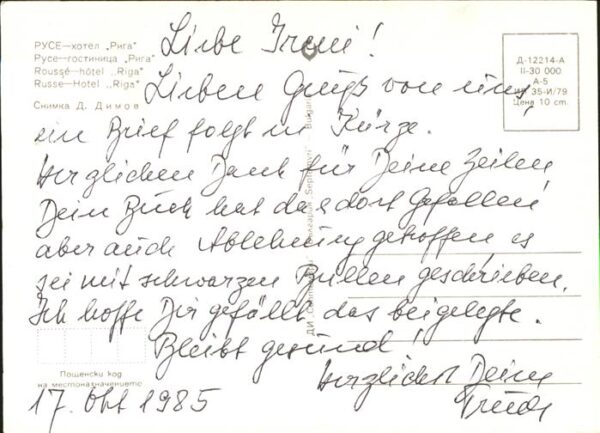 РУСЕ—хотел „Рига"
Русе—гостиница „Рига"
Roussé—hôtel „Riga"
Russe—Hotel „Riga"
Снимка Д. Димов
Д-12214-А
II-30 000
А-5
35-И/79
Цена 10 cm.
Liebe Ireni!
Lieben Gruß von uns,
ein Brief folgt in Kürze.
Herzlichen Dank für Deine Zeilen
Dein Buch hat da & dort Gefallen
aber auch Ablehnung getroffen, es
sei mit schwarzen Brillen geschrieben.
Ich hoffe Dir gefällt das beigelegte.
Bleibt gesund!
Herzlichst Deine
Trude
17. Okt 1985
Пощенски код
на местоназначението